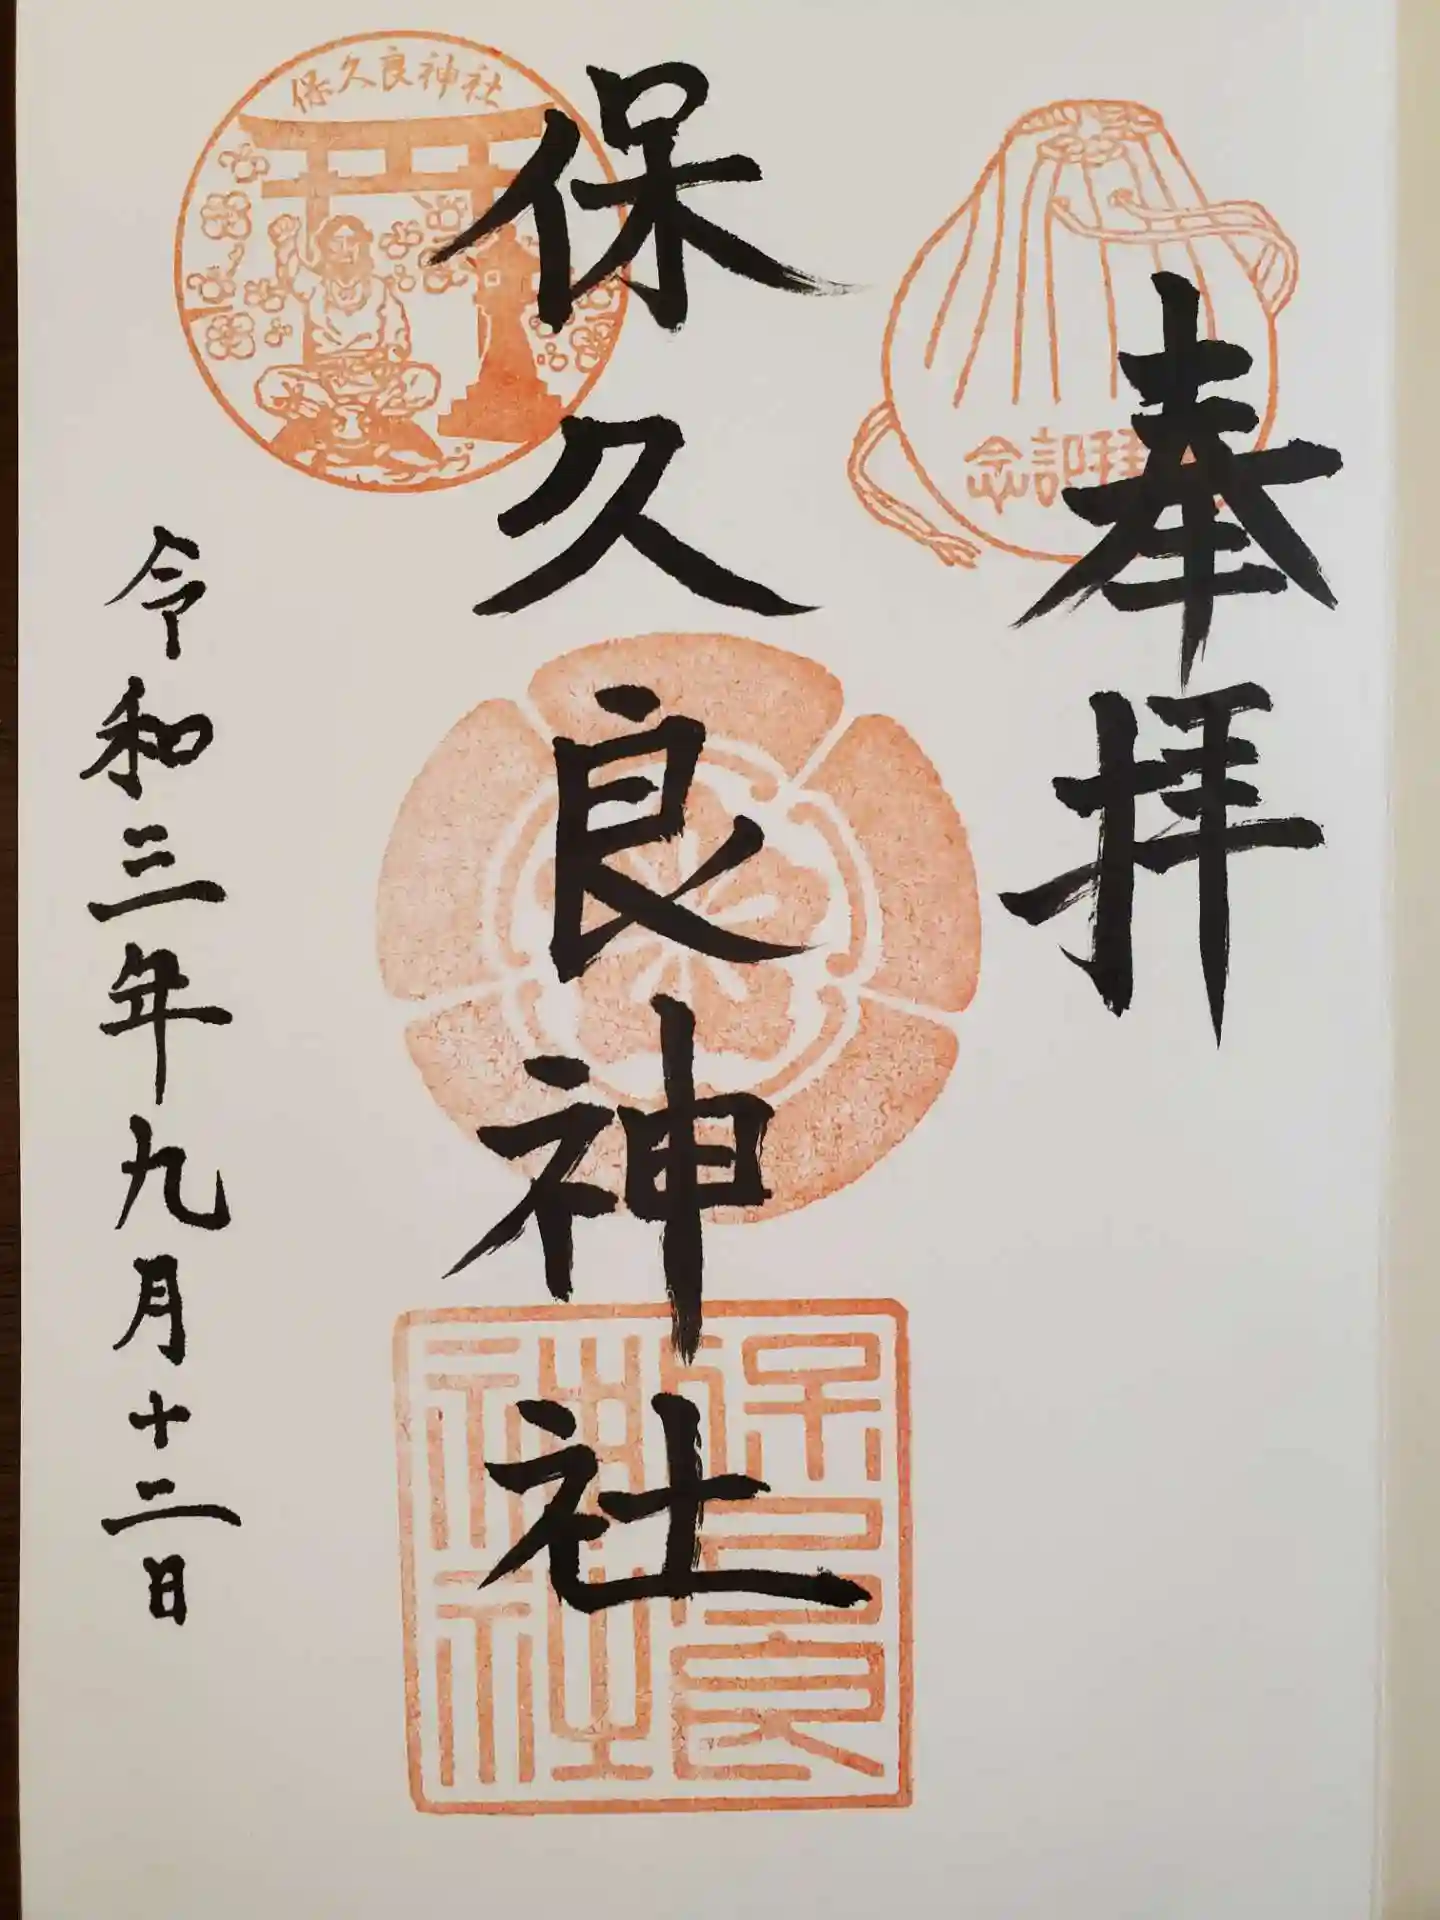 奉拝
参拝記念
保久良神社
保久良神社
保久良
神社
令和三年九月十二日